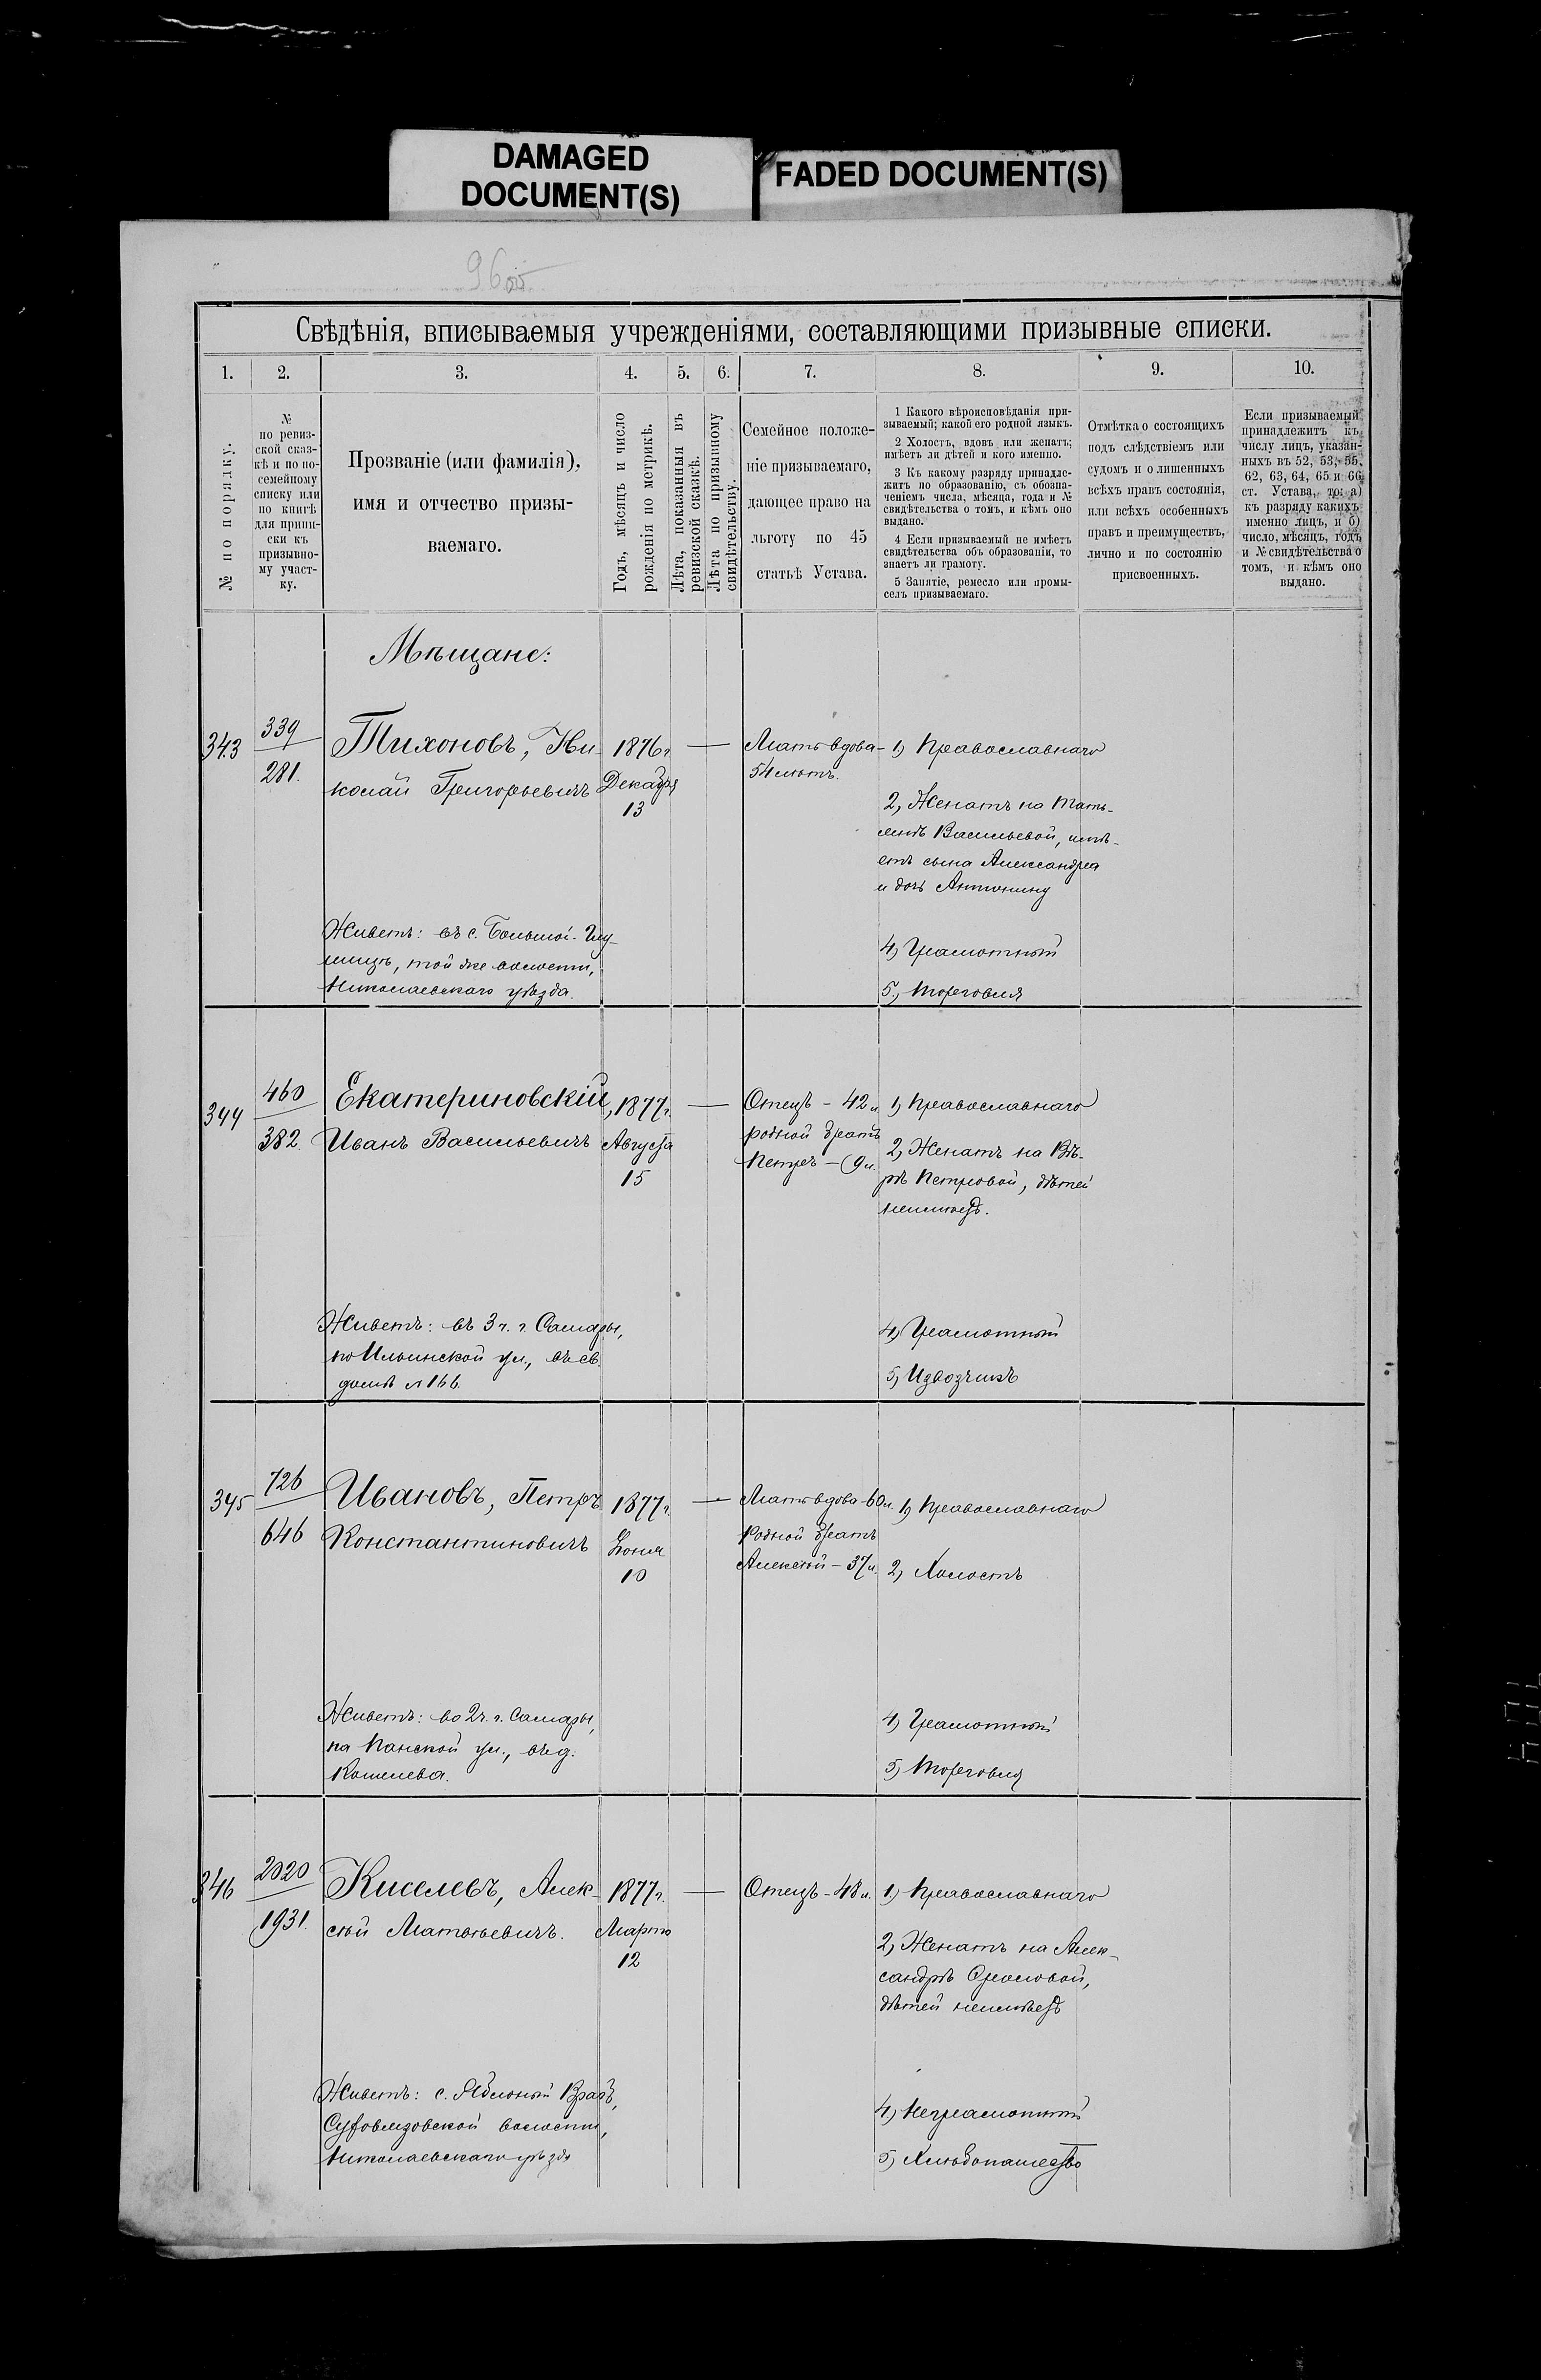 DAMAGED
DOCUMENT(S)
FADED DOCUMENT(S)
Свѣдѣнія, вписываемыя учрежденіями, составляющими призывные списки.
1.
2.
3.
4.
5.
6.
7.
8.
9.
10.
№ по порядку.
№
по ревиз-
ской сказ-
кѣ и по по-
семейному
списку или
по книгѣ
для припи-
ски къ
призывно-
му участ-
ку.
Прозваніе (или фамилія),
имя и отчество призы-
ваемаго.
Годъ, мѣсяцъ и число
рожденія по метрикѣ.
Лѣта, показанныя въ
ревизской сказкѣ.
Лѣта по призывному
свидѣтельству.
Семейное положе-
ніе призываемаго,
дающее право на
льготу по 45
статьѣ Устава.
1 Какого вѣроисповѣданія при-
зываемый; какой его родной языкъ.
2 Холостъ, вдовъ или женатъ;
имѣетъ ли дѣтей и кого именно.
3 Къ какому разряду принадле-
житъ по образованію, съ обозна-
ченіемъ числа, мѣсяца, года и №
свидѣтельства о томъ, и кѣмъ оно
выдано.
4 Если призываемый не имѣетъ
свидѣтельства объ образованіи, то
знаетъ ли грамоту.
5 Занятіе, ремесло или промы-
селъ призываемаго.
Отмѣтка о состоящихъ
подъ слѣдствіемъ или
судомъ и о лишенныхъ
всѣхъ правъ состоянія,
или всѣхъ особенныхъ
правъ и преимуществъ,
лично и по состоянію
присвоенныхъ.
Если призываемый
принадлежитъ къ
числу лицъ, указан-
ныхъ въ 52, 53, 55,
62, 63, 64, 65 и 66
ст. Устава, то: а)
къ разряду какихъ
именно лицъ, и б)
число, мѣсяцъ, годъ
и № свидѣтельства о
томъ, и кѣмъ оно
выдано.
Мѣщане:
343
339
281.
Тихоновъ, Ни-
колай Григорьевичъ
1876 г.
Декабря
13
Мать вдова -
54 лѣтъ.
1) Православнаго
2, Женатъ на Тать-
Васильевой, имѣ-
етъ сына Александра
и дочь Антонину
4) Грамотный
5.) Торговля
Живетъ: въ с. Большой- Глу-
шицѣ, той же волости,
Николаевскаго уѣзда.
344
460
382.
Екатериновскій,
Иванъ Васильевичъ
1877 г.
Августа
15
Отецъ - 42 л.
родной братъ
Петръ - 9 л.
1) Православнаго
2, Женатъ на Вѣ-
рѣ Петровой, дѣтей
неимѣетъ.
4) Грамотный
5) Извозчикъ
Живетъ: въ 3 ч. г. Самары,
по Ильинской ул., въ св.
домѣ № 166.
345
726
646
Ивановъ, Петръ
Константиновичъ
1877 г.
Іюня
10
Мать вдова - 60 л.
Родной братъ
Алексѣй - 37 л.
1) Православнаго
2) Холостъ
4) Грамотный
5) Торговля
Живетъ: во 2 ч. г. Самары,
на Панской ул., въ д.
Кошелева.
346
2020
1931.
Киселевъ, Алек-
сѣй Матвѣевичъ.
1877 г.
Марта
12
Отецъ - 48 л.
1) Православнаго
2) Женатъ на Алек-
сандрѣ
дѣтей неимѣетъ
4) Неграмотный
5) Хлѣбопашество
Живетъ: с. Яблоный Врагъ,
волости,
Николаевскаго уѣзда